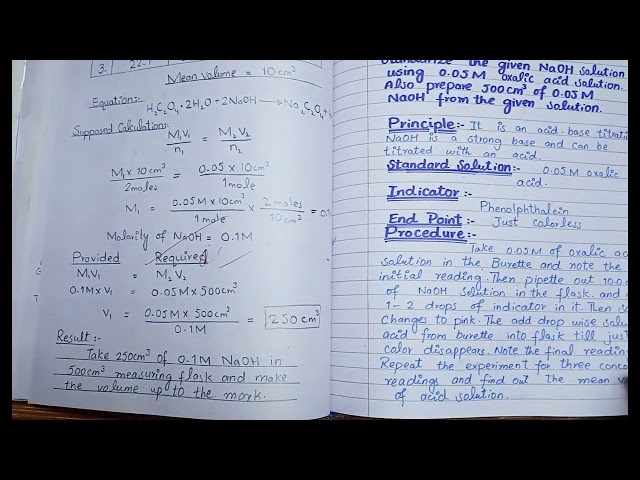 3. 22.
Mean volume = 10 cm³
Equation:-
H₂C₂O₄·2H₂O + 2NaOH → Na₂C₂O₄ +
Supposed Calculation:-
M₁V₁/n₁ = M₂V₂/n₂
M₁ × 10 cm³/2moles = 0.05 × 10 cm³/1mole
M₁ = 0.05M × 10cm³/1mole × 2 moles/10 cm³ = 0.1
Molarity of NaOH = 0.1M
Provided Required
M₁V₁ = M₂V₂
0.1M × V₁ = 0.05M × 500cm³
V₁ = 0.05M × 500cm³/0.1M = 250 cm³
Result:-
Take 250cm³ of 0.1M NaOH in
500cm³ measuring flask and make
the volume up to the mark.
the given NaOH solution
using 0.05M oxalic acid solution.
Also prepare 500cm³ of 0.05M
NaOH from the given solution.
Principle:- It is an acid-base
NaOH is a strong base and can be
titrated with an acid.
Standard Solution:- 0.05M oxalic
acid.
Indicator:-
Phenolphthalein
End Point:- Just colorless
Procedure:-
Take 0.05M of oxalic
solution in the Burette and note the
initial reading. Then pipette out
of NaOH solution in the flask. and
1-2 drops of indicator in it. Then
changes to pink. The add drop wise
acid from burette into flask till
color disappears. Note the final
Repeat the experiment for three
readings and find out the mean
of acid solution.